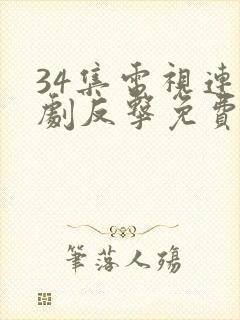 34集電視連
劇反擊免費
筆落人殤